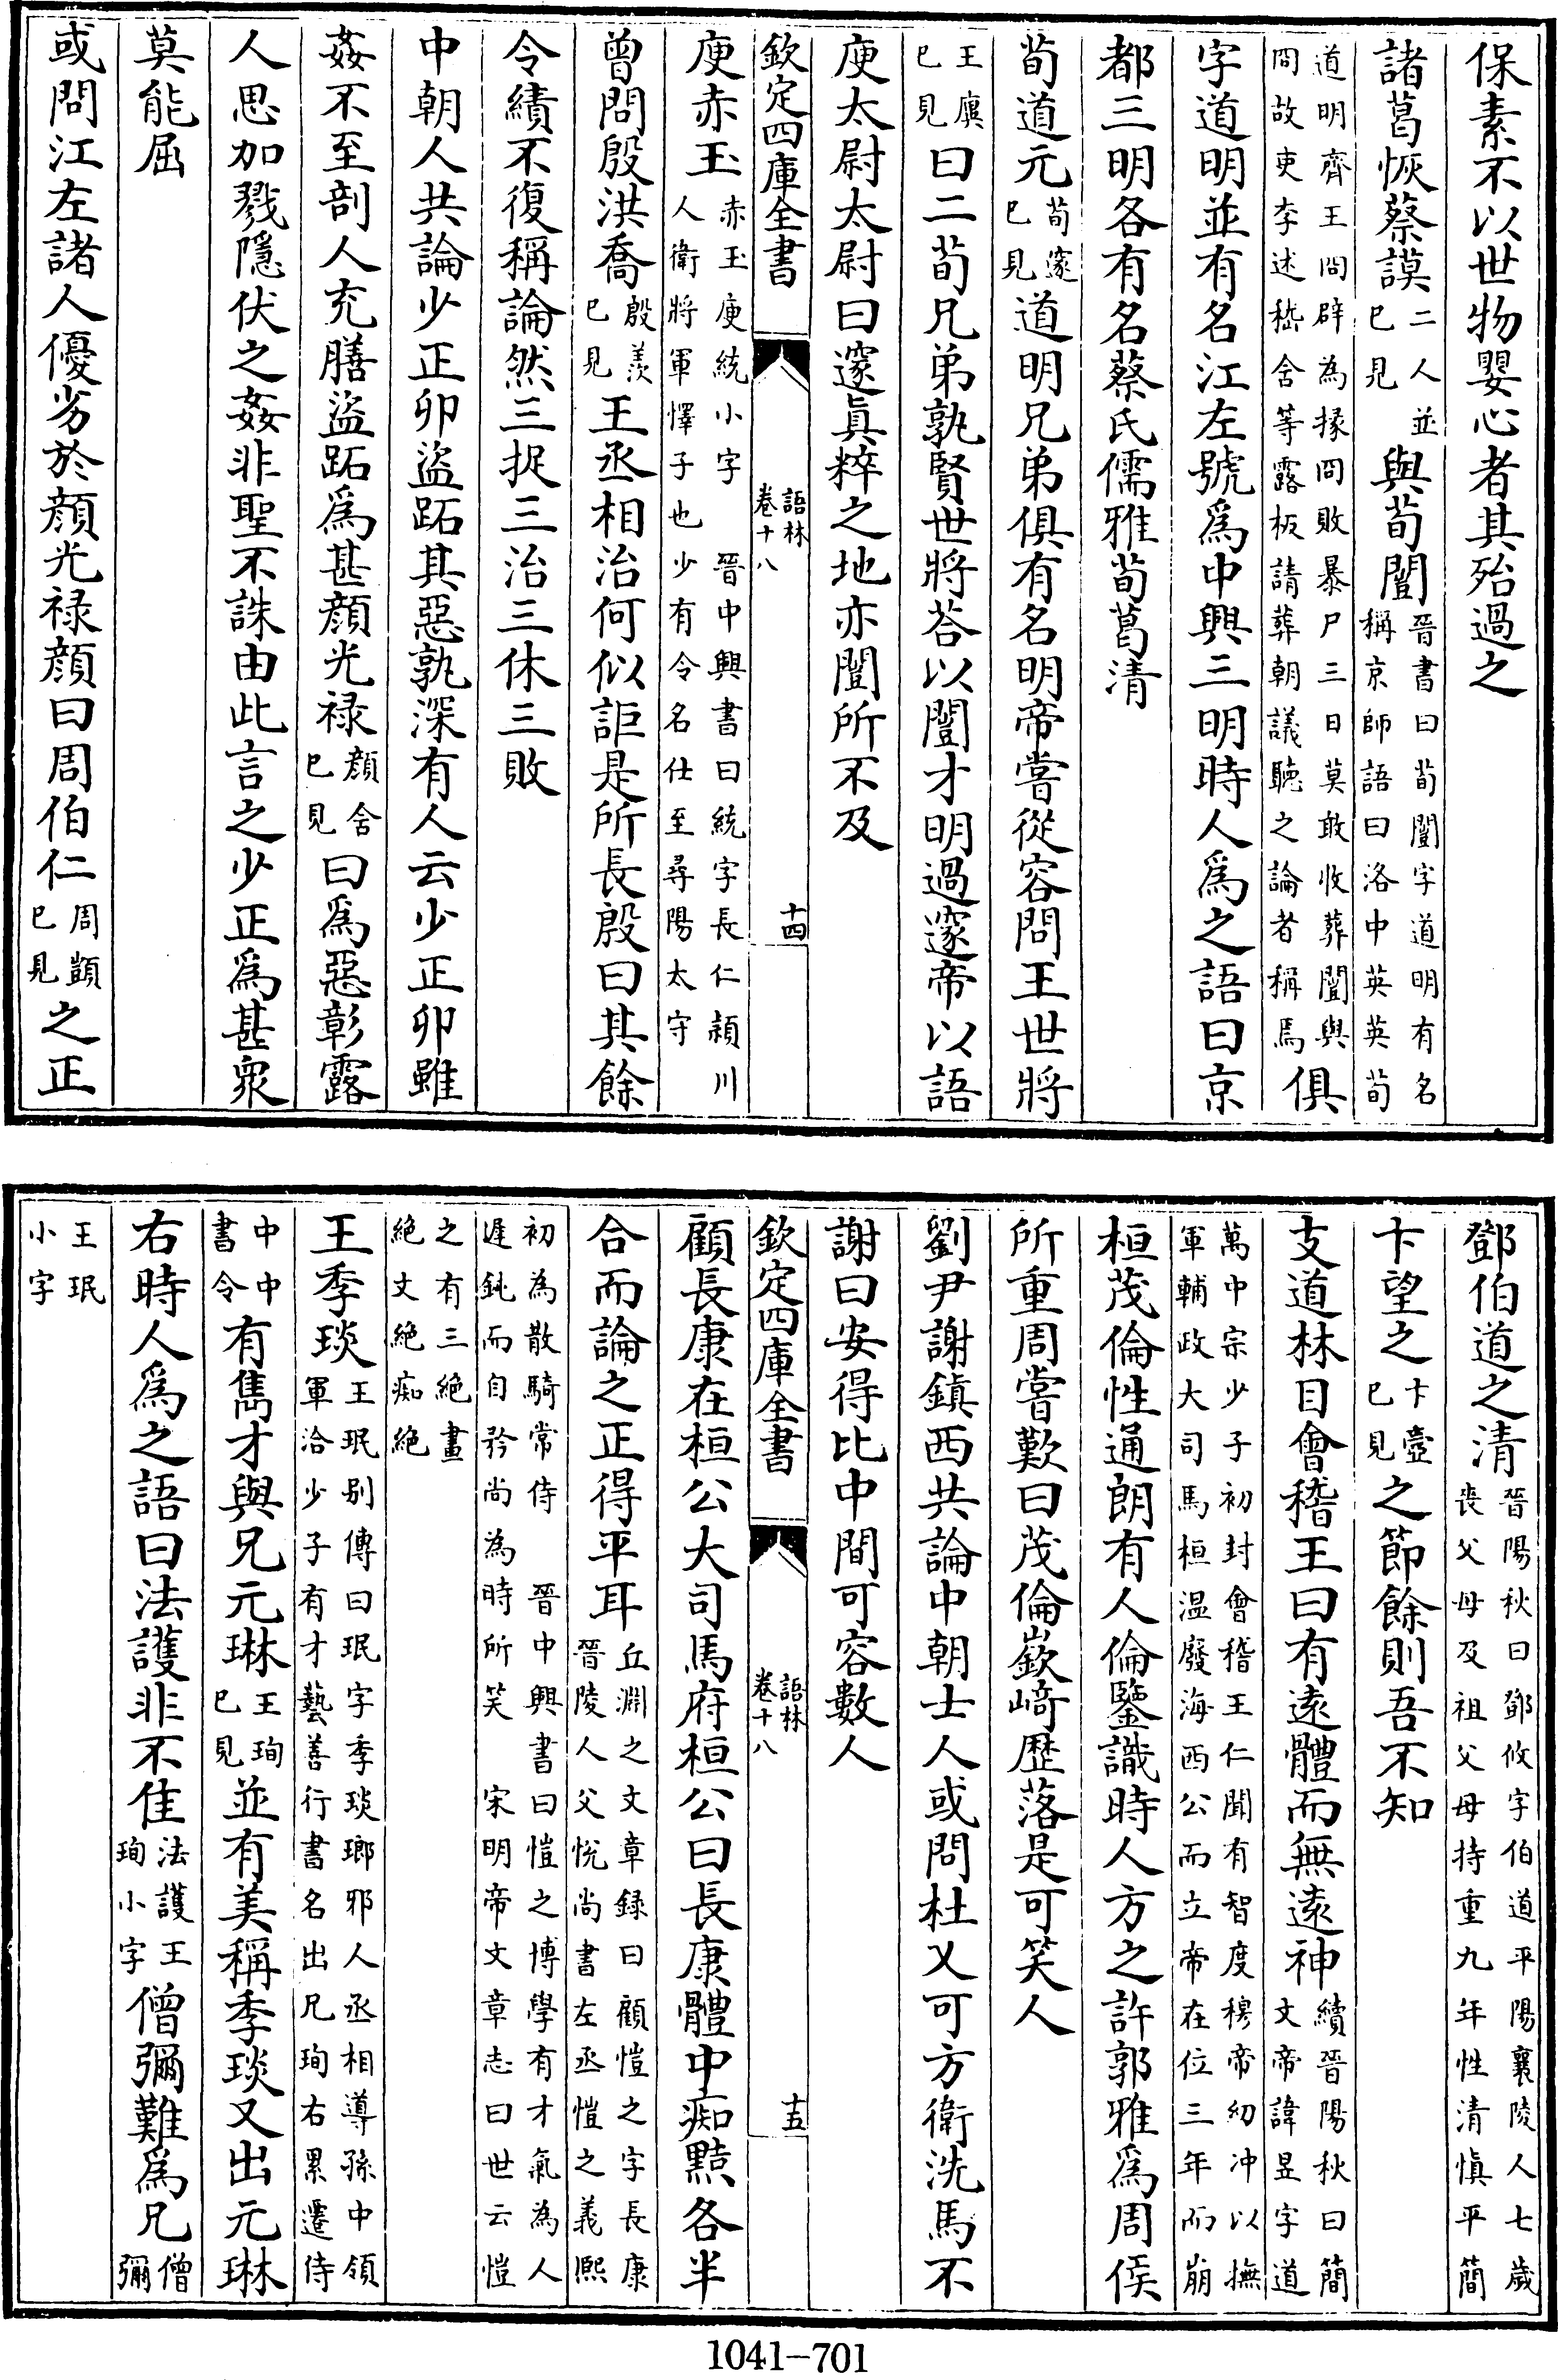 保素不以世物嬰心者其殆過之
諸葛恢蔡謨二人並已見與荀闓晉書曰荀闓字道明有名稱京師語曰洛中英英荀
道明齊王冏辟為掾冏敗暴尸三日莫敢收葬闓與冏故吏李述嵇含等露板請葬朝議聽之論者稱焉俱
字道明並有名江左號爲中興三明時人爲之語曰京
都三明各有名蔡氏儒雅荀葛清
荀道元荀邃已見道明兄弟俱有名明帝嘗從容問王世將
王廙已見曰二荀兄弟孰賢世將荅以闓才明過邃帝以語
庾太尉太尉曰邃眞粹之地亦闓所不及
欽定四庫全書 語林卷十八 十四
庾赤玉赤玉庾統小字 晉中興書曰統字長仁潁川人衛將軍懌子也少有令名仕至尋陽太守
曾問殷洪喬殷羨已見王丞相治何似詎是所長殷曰其餘
令績不復稱論然三捉三治三休三敗
中朝人共論少正卯盜跖其惡孰深有人云少正卯雖
姦不至剖人充膳盜跖爲甚顏光禄顏含已見曰爲惡彰露
人思加戮隱伏之姦非聖不誅由此言之少正爲甚衆
莫能屈
或問江左諸人優劣於顏光禄顏曰周伯仁周顗已見之正
鄧伯道之清晉陽秋曰鄧攸字伯道平陽襄陵人七歲喪父母及祖父母持重九年性清愼平簡
卞望之卞壼已見之節餘則吾不知
支道林目會稽王曰有遠體而無遠神續晉陽秋曰簡文帝諱昱字道
萬中宗少子初封會稽王仁聞有智度穆帝幼冲以撫軍輔政大司馬桓温廢海西公而立帝在位三年而崩
桓茂倫性通朗有人倫鑒識時人方之許郭雅爲周侯
所重周嘗歎曰茂倫嶔﨑歴落是可笑人
劉尹謝鎮西共論中朝士人或問杜乂可方衛洗馬不
謝曰安得比中間可容數人
欽定四庫全書 語林卷十八 十五
顧長康在桓公大司馬府桓公曰長康體中痴黠各半
合而論之正得平耳丘淵之文章録曰顧愷之字長康晉陵人父悅尚書左丞愷之義熙
初為散騎常侍 晉中興書曰愷之博學有才氣為人遲鈍而自矜尚為時所笑 宋明帝文章志曰世云愷
之有三絶畫絶文絶痴絶
王季琰王珉别傳曰珉字季琰瑯邪人丞相導孫中領軍洽少子有才藝善行書名出兄珣右累遷侍
中中書令有雋才與兄元琳王珣已見並有美稱季琰又出元琳
右時人爲之語曰法護非不佳法護王珣小字僧彌難爲兄僧彌
王珉小字
1041-701